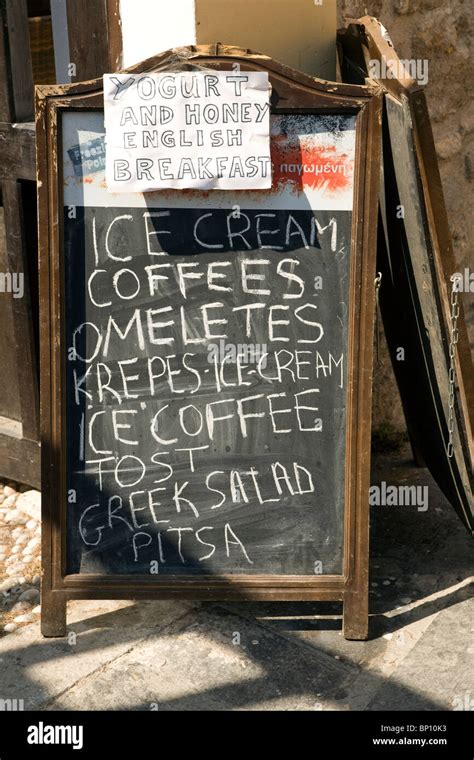 YOGURT
AND HONEY
ENGLISH
BREAKFAST
παγωμένη
ICE CREAM
COFFEES
OMELETES
KREPES-ICE-CREAM
ICE COFFEE
TOST
GREEK SALAD
PITSA
alamy
alamy
Image ID: BP10K3
www.alamy.com